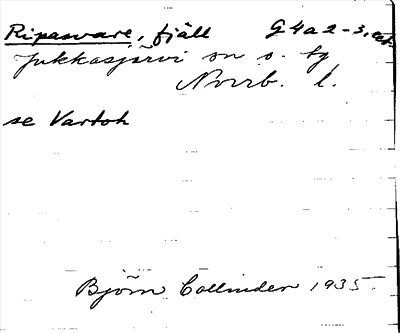 Ripasvare, fjäll G4a2-3, 
Jukkasjärvi sn o. tg
Norrb. l.
se Vartoh
Björn Collinder 1935.